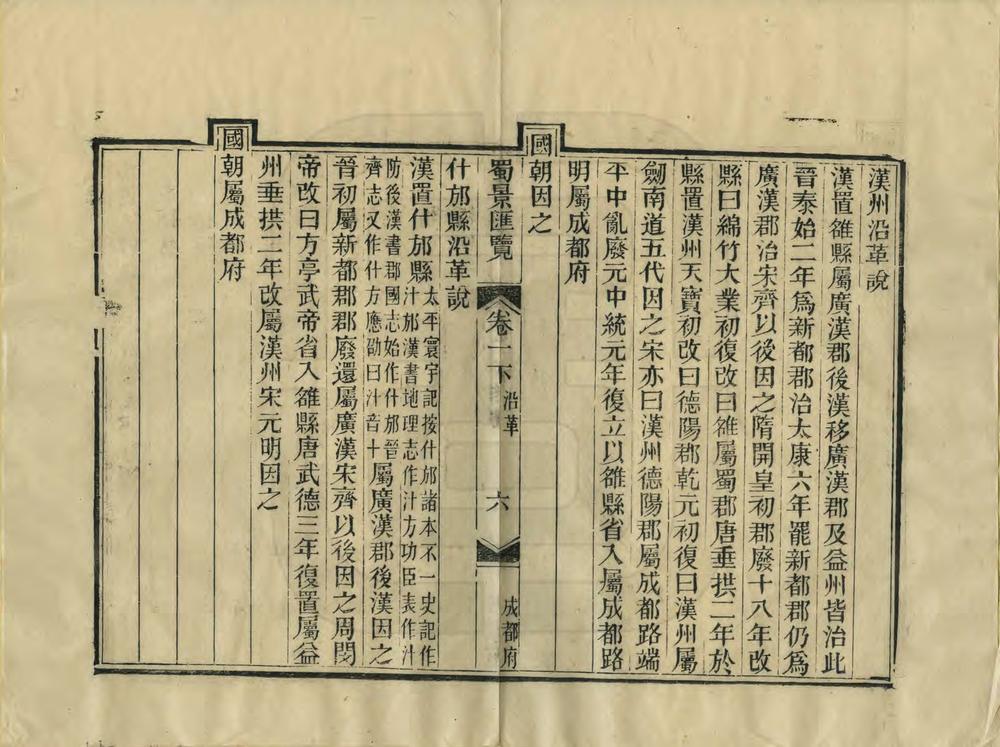 漢州沿革說
漢置雒縣屬廣漢郡後漢移廣漢郡及益州皆治此
晉泰始二年爲新都郡治太康六年罷新都郡仍爲
廣漢郡治宋齊以後因之隋開皇初郡廢十八年改
縣曰綿竹大業初復改曰雒屬蜀郡唐垂拱二年於
縣置漢州天寶初改曰德陽郡乾元初復曰漢州屬
劒南道五代因之宋亦曰漢州德陽郡屬成都路端
平中亂廢元中統元年復立以雒縣省入屬成都路
明屬成都府
國朝因之
蜀景匯覽 卷一下 沿革 六 成都府
什邡縣沿革說
漢置什邡縣太平寰宇記按什邡諸本不一史記作
汁邡漢書地理志作汁方功臣表作汁
防後漢書郡國志始作什邡晉
齊志又作什方應劭曰汁音十屬廣漢郡後漢因之
晉初屬新都郡郡廢還屬廣漢宋齊以後因之周閔
帝改曰方亭武帝省入雒縣唐武德三年復置屬益
州垂拱二年改屬漢州宋元明因之
國朝屬成都府